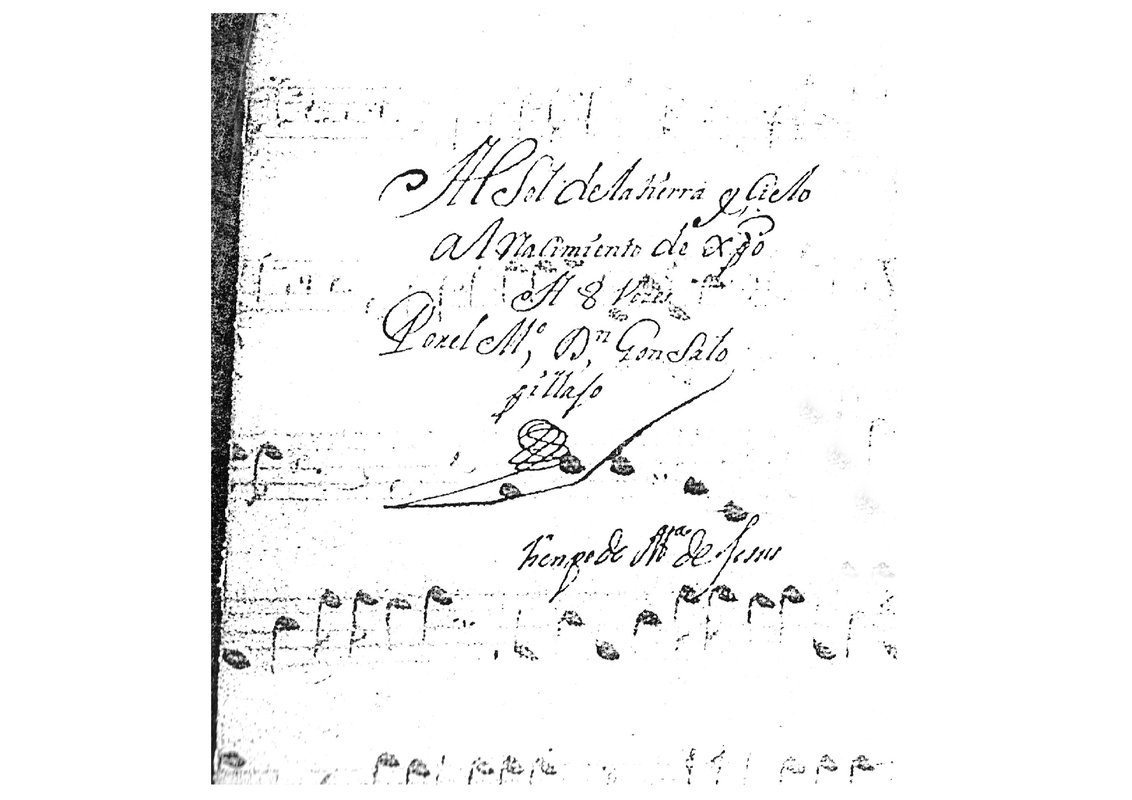 Al Sol de la tierra y Cielo
al Nacimiento de Xpo
A 8 Vozes
Por el Mº, Dⁿ, Gonsalo
gillaso
tienpo de Mª de Jesus